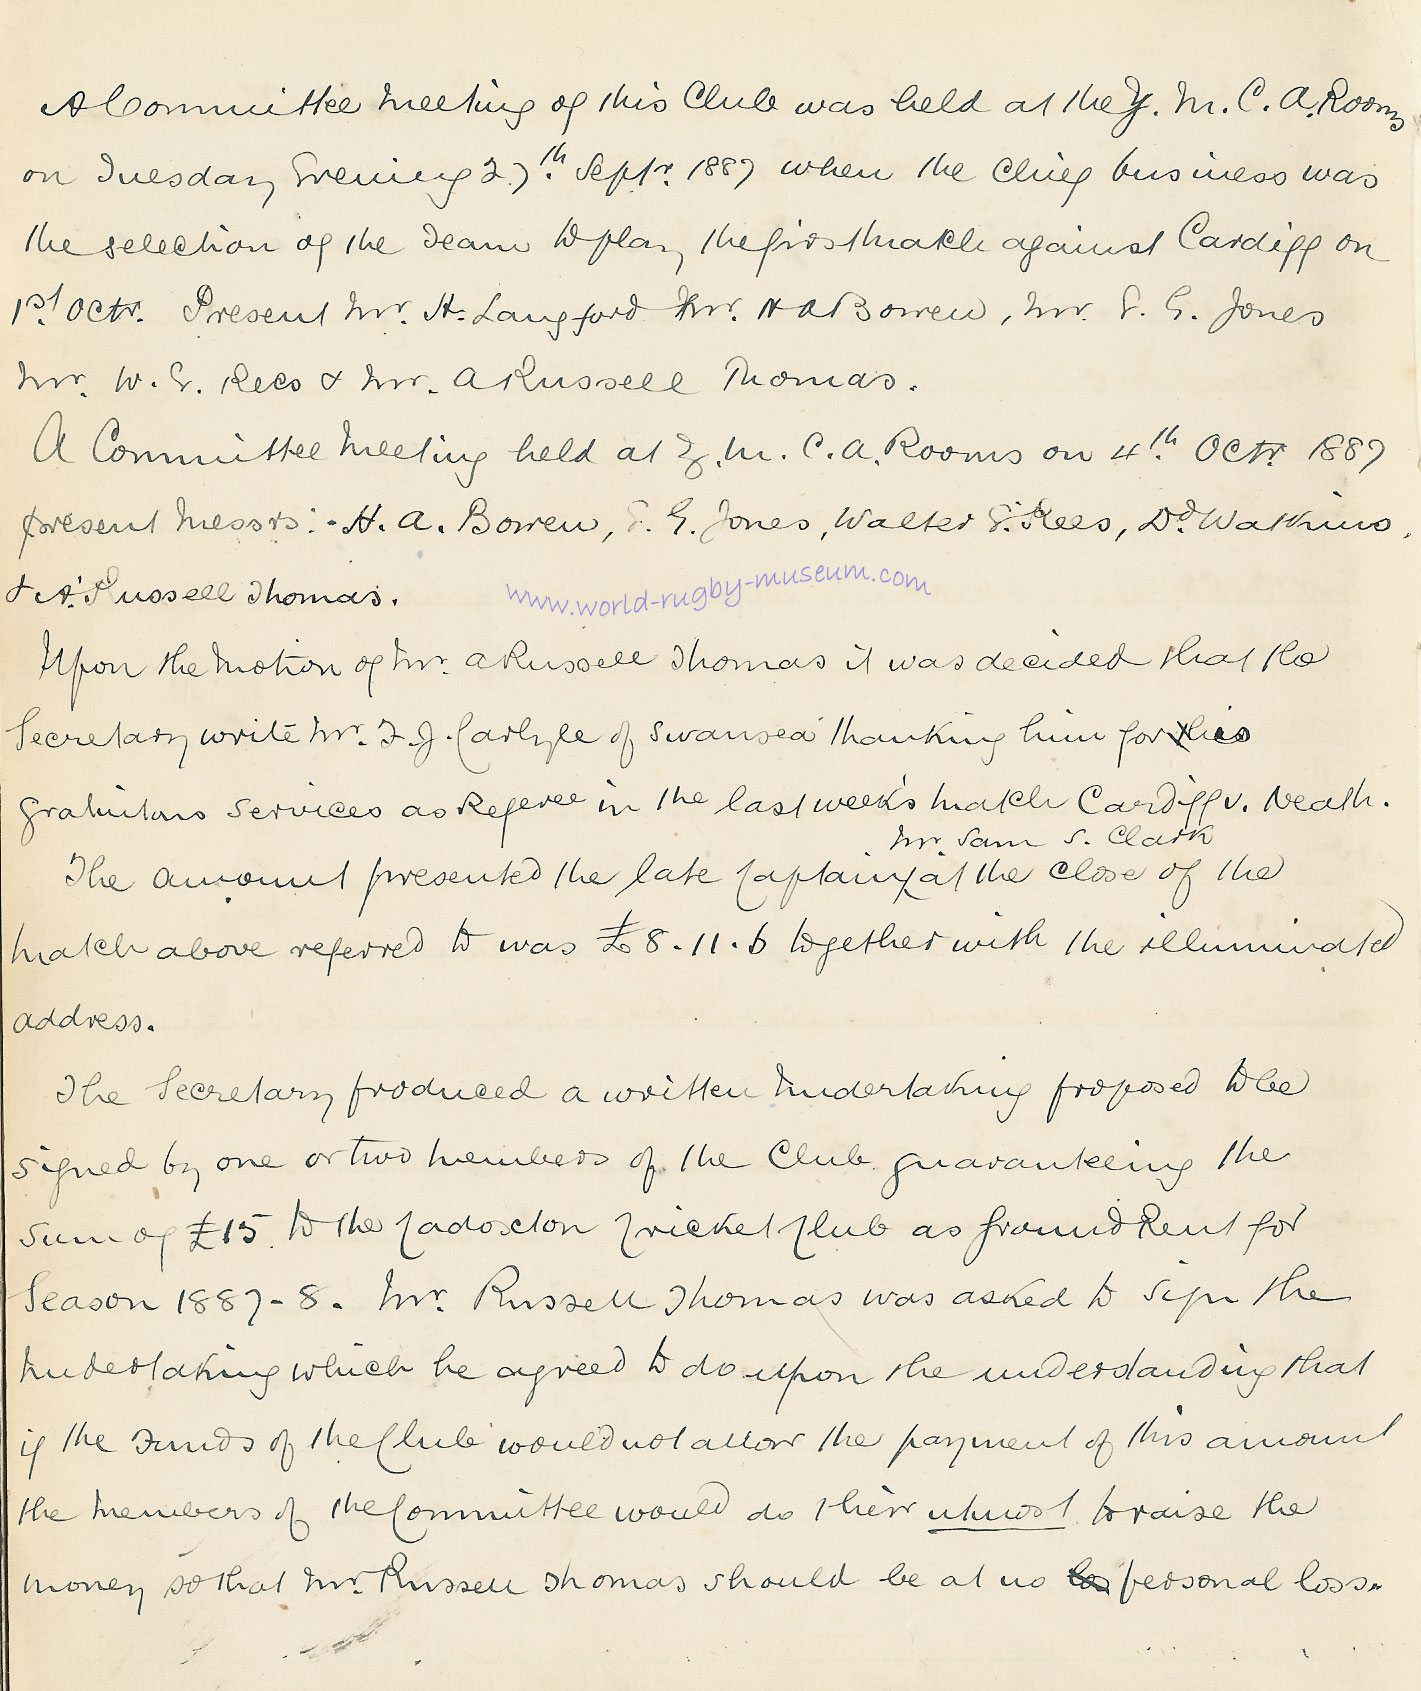 A Committee Meeting of this Club was held at the Y. M. C. A. Rooms
on Tuesday Evening 27th. Septr. 1887 when the chief business was
the selection of the Team to play the first match against Cardiff on
1st. Octr. Present Mr. H. Langford Mr. H A Bowen, Mr. E. G. Jones
Mr. W. E. Rees & Mr. A Russell Thomas.
A Committee Meeting held at Y. M. C. A. Rooms on 4th. Octr. 1887
present Messrs:- H. A. Bowen, E. G. Jones, Walter E. Rees, Dd. Watkins,
& A. Russell Thomas.
www.world-rugby-museum.com
Upon the Motion of Mr. A Russell Thomas it was decided that the
Secretary write Mr. F. J. Carlyle of Swansea thanking him for his
gratuitous services as Referee in the last week's match Cardiff v. Neath.
Mr. Sam S. Clark
The amount presented the late Captain at the close of the
match above referred to was £8-11-6 together with the illuminated
address.
The Secretary produced a written Undertaking proposed to be
signed by one or two members of the Club guaranteeing the
sum of £15 to the Cadoxton Cricket Club as Ground Rent for
Season 1887-8. Mr. Russell Thomas was asked to sign the
Undertaking which he agreed to do upon the understanding that
if the Funds of the Club would not allow the payment of this amount
the Members of the Committee would do their utmost to raise the
money so that Mr. Russell Thomas should be at no personal loss.